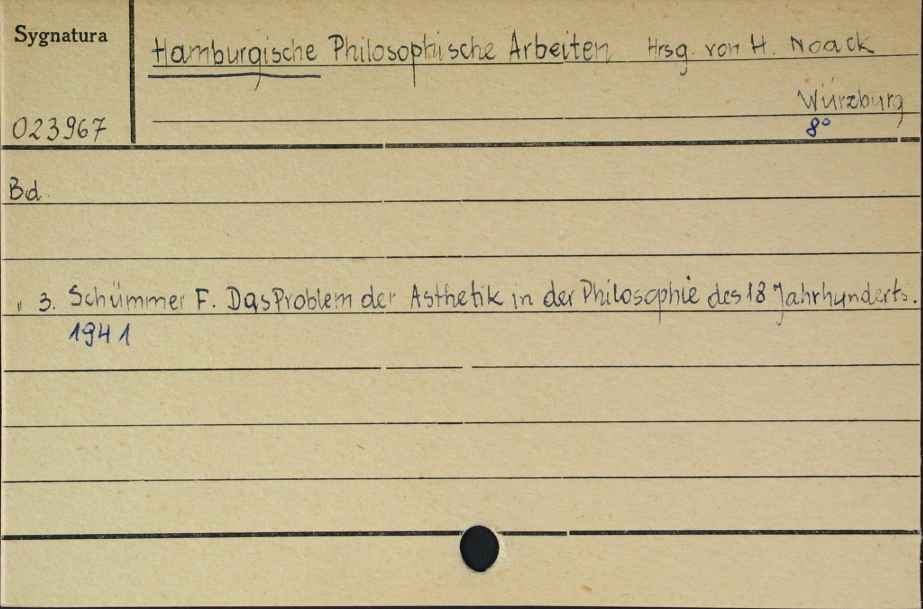 Sygnatura
Hamburgische Philosophische Arbeiten Hrsg. von H. Noack
Würzburg
023967
8°
Bd.
" 3. Schümmer F. Das Problem der Asthetik in der Philosophie des 18 Jahrhunderts.
1941